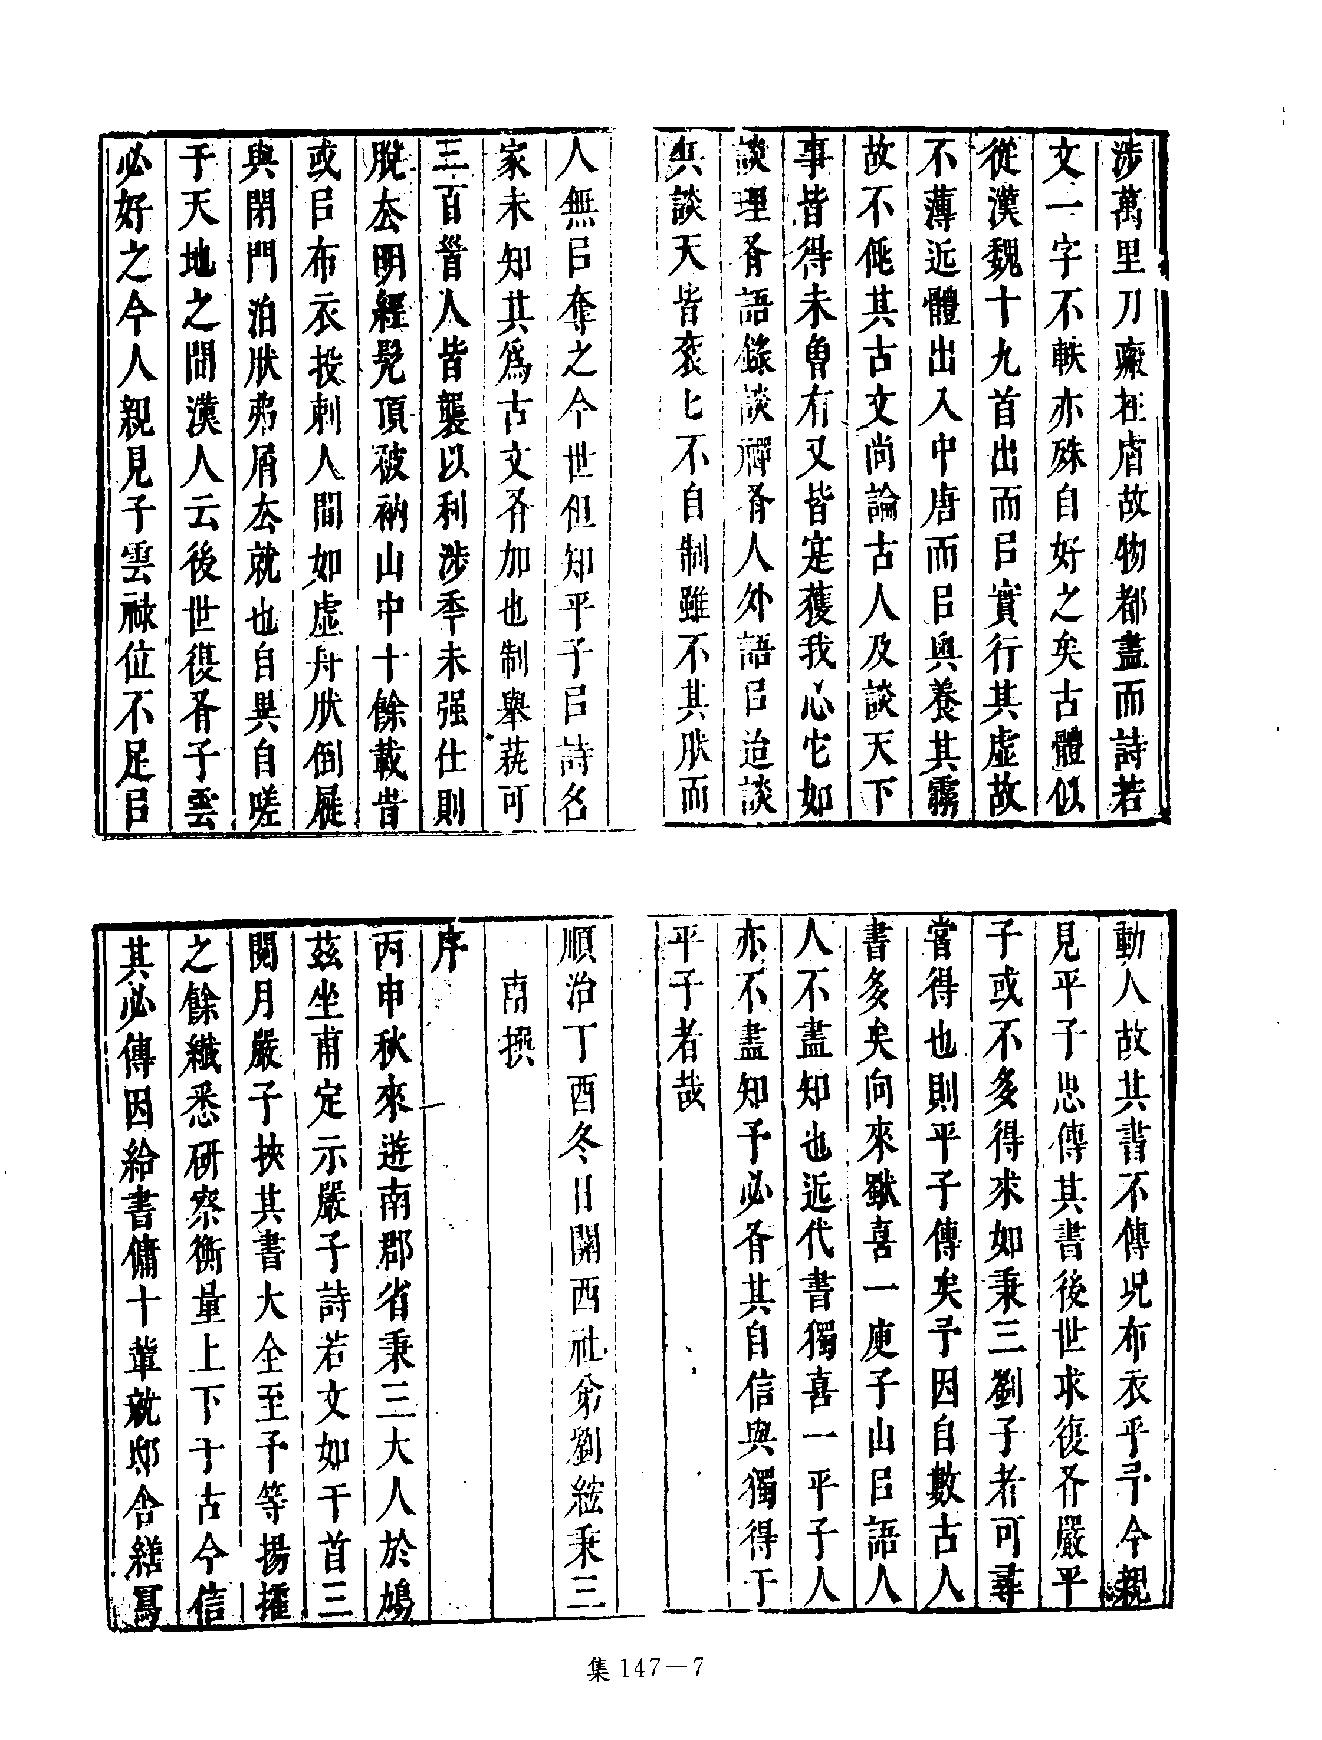 涉萬里刀瘢在膚故物都盡而詩若
文一字不軼亦殊自好之矣古體似
從漢魏十九首出而㠯實行其虛故
不薄近體出入中唐而㠯與養其靄
故不俺其古文尚論古人及談天下
事皆得未曾有又皆寔獲我心它如
談理有語錄談禪有人外語㠯迨談
兵談天皆袞匕不自制雖不其肰而
人無㠯奪之今世但知平子㠯詩名
家未知其爲古文有加也制舉蓺可
三百首人皆襲以利涉季未强仕則
脫厺明經髡頂破衲山中十餘載昔
或㠯布衣投刺人間如虛舟肰倒屣
與閉門泊肰弗屑厺就也自異自嗟
于天地之間漢人云後世復有子雲
必好之今人親見子雲祿位不足㠯
動人故其書不傳況布衣乎予今親
見平子忠傳其書後世求復有嚴平
子或不多得求如秉三劉子者可尋
嘗得也則平子傳矣予因自數古人
書多矣向來獣喜一庾子山㠯語人
人不盡知也近代書獨喜一平子人
亦不盡知予必有其自信與獨得于
平子者哉
順治丁酉冬日關西社弟劉紘秉三
甫撰
序
丙申秋來遊南郡省秉三大人於鳩
茲坐甫定示嚴子詩若文如干首三
閱月嚴子挾其書大全至予等揚搉
之餘纖悉硏察衡量上下于古今信
其必傳因給書傭十輩就邸舍繕寫
集 147－7